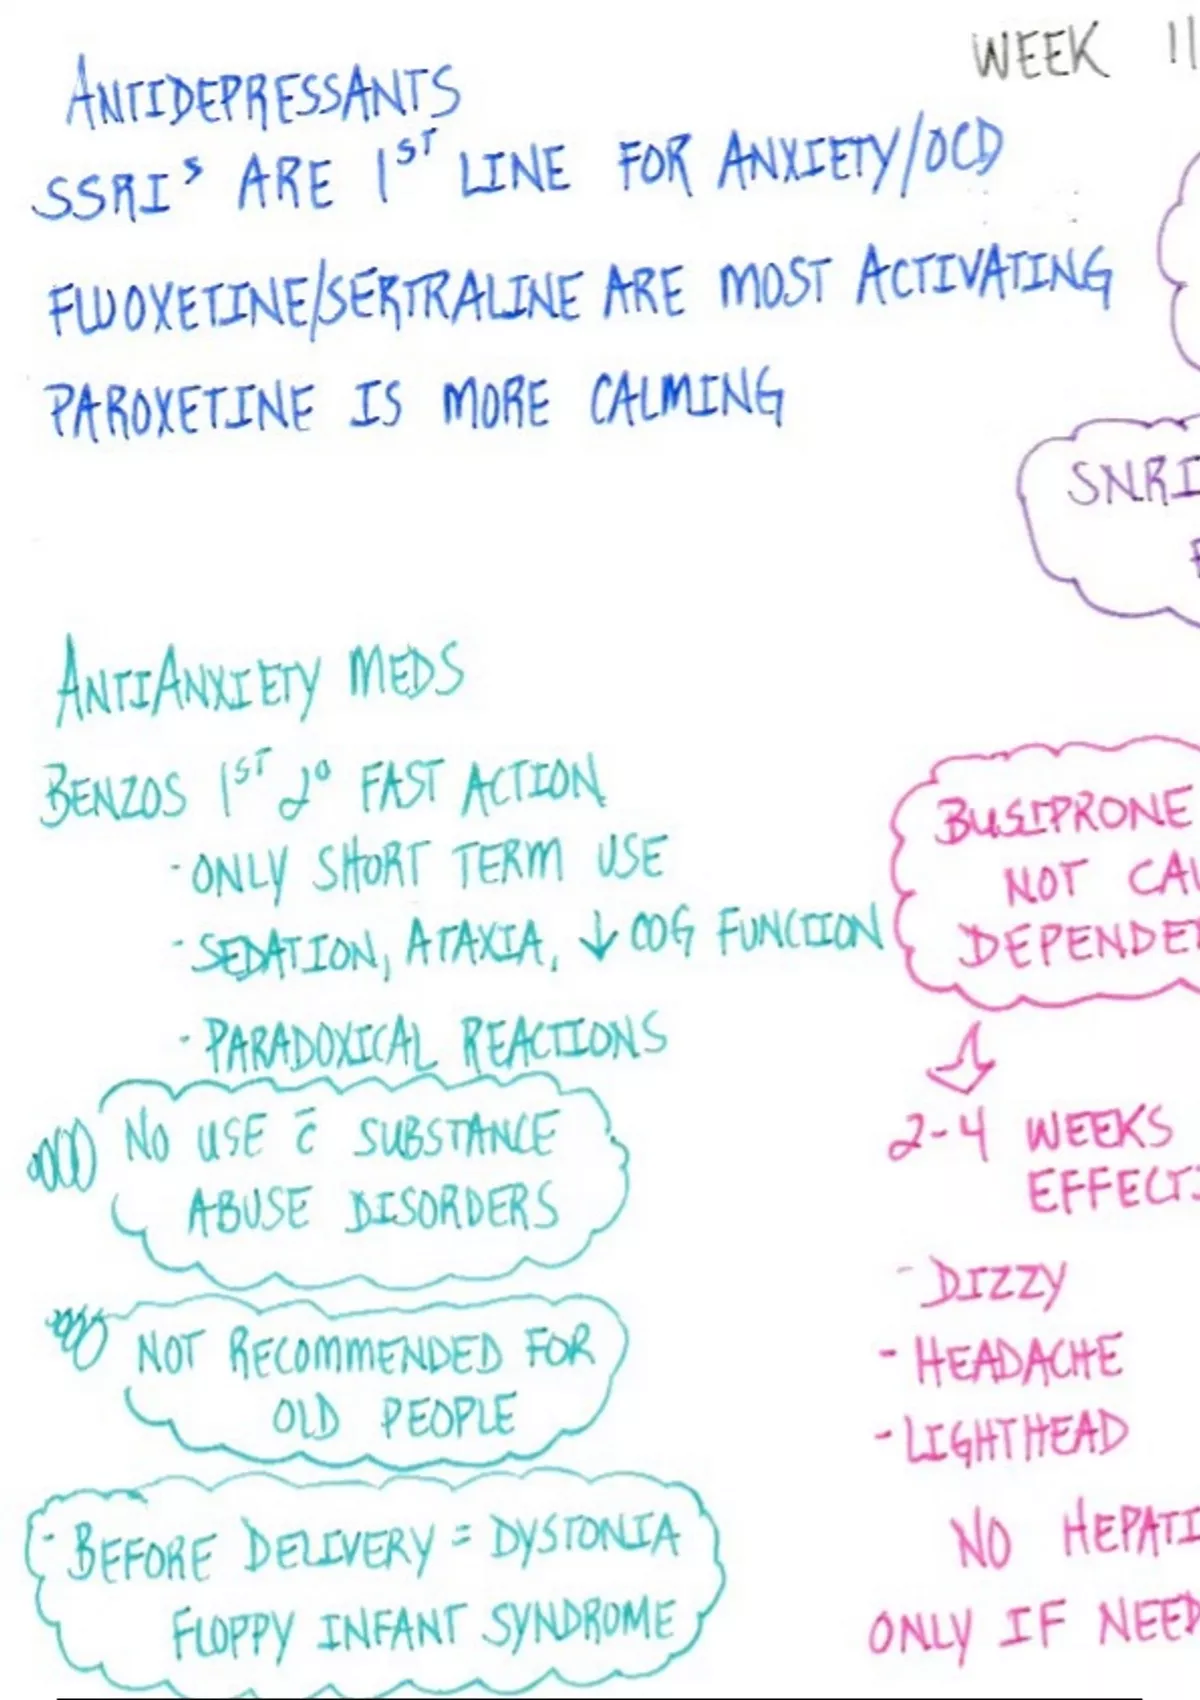 WEEK 11
ANTIDEPRESSANTS
SSRIs ARE 1ST LINE FOR ANXIETY/OCD
FLUOXETINE/SERTRALINE ARE MOST ACTIVATING
PAROXETINE IS MORE CALMING
SNRI
ANTIANXIETY MEDS
BENZOS 1ST 2° FAST ACTION
- ONLY SHORT TERM USE
- SEDATION, ATAXIA, ↓ COG FUNCTION
- PARADOXICAL REACTIONS
NO USE c̄ SUBSTANCE
ABUSE DISORDERS
NOT RECOMMENDED FOR
OLD PEOPLE
- BEFORE DELIVERY = DYSTONIA
FLOPPY INFANT SYNDROME
BUSIPRONE
NOT CAU
DEPENDEN
2-4 WEEKS
EFFECTI
- DIZZY
- HEADACHE
- LIGHTHEAD
NO HEPATI
ONLY IF NEED